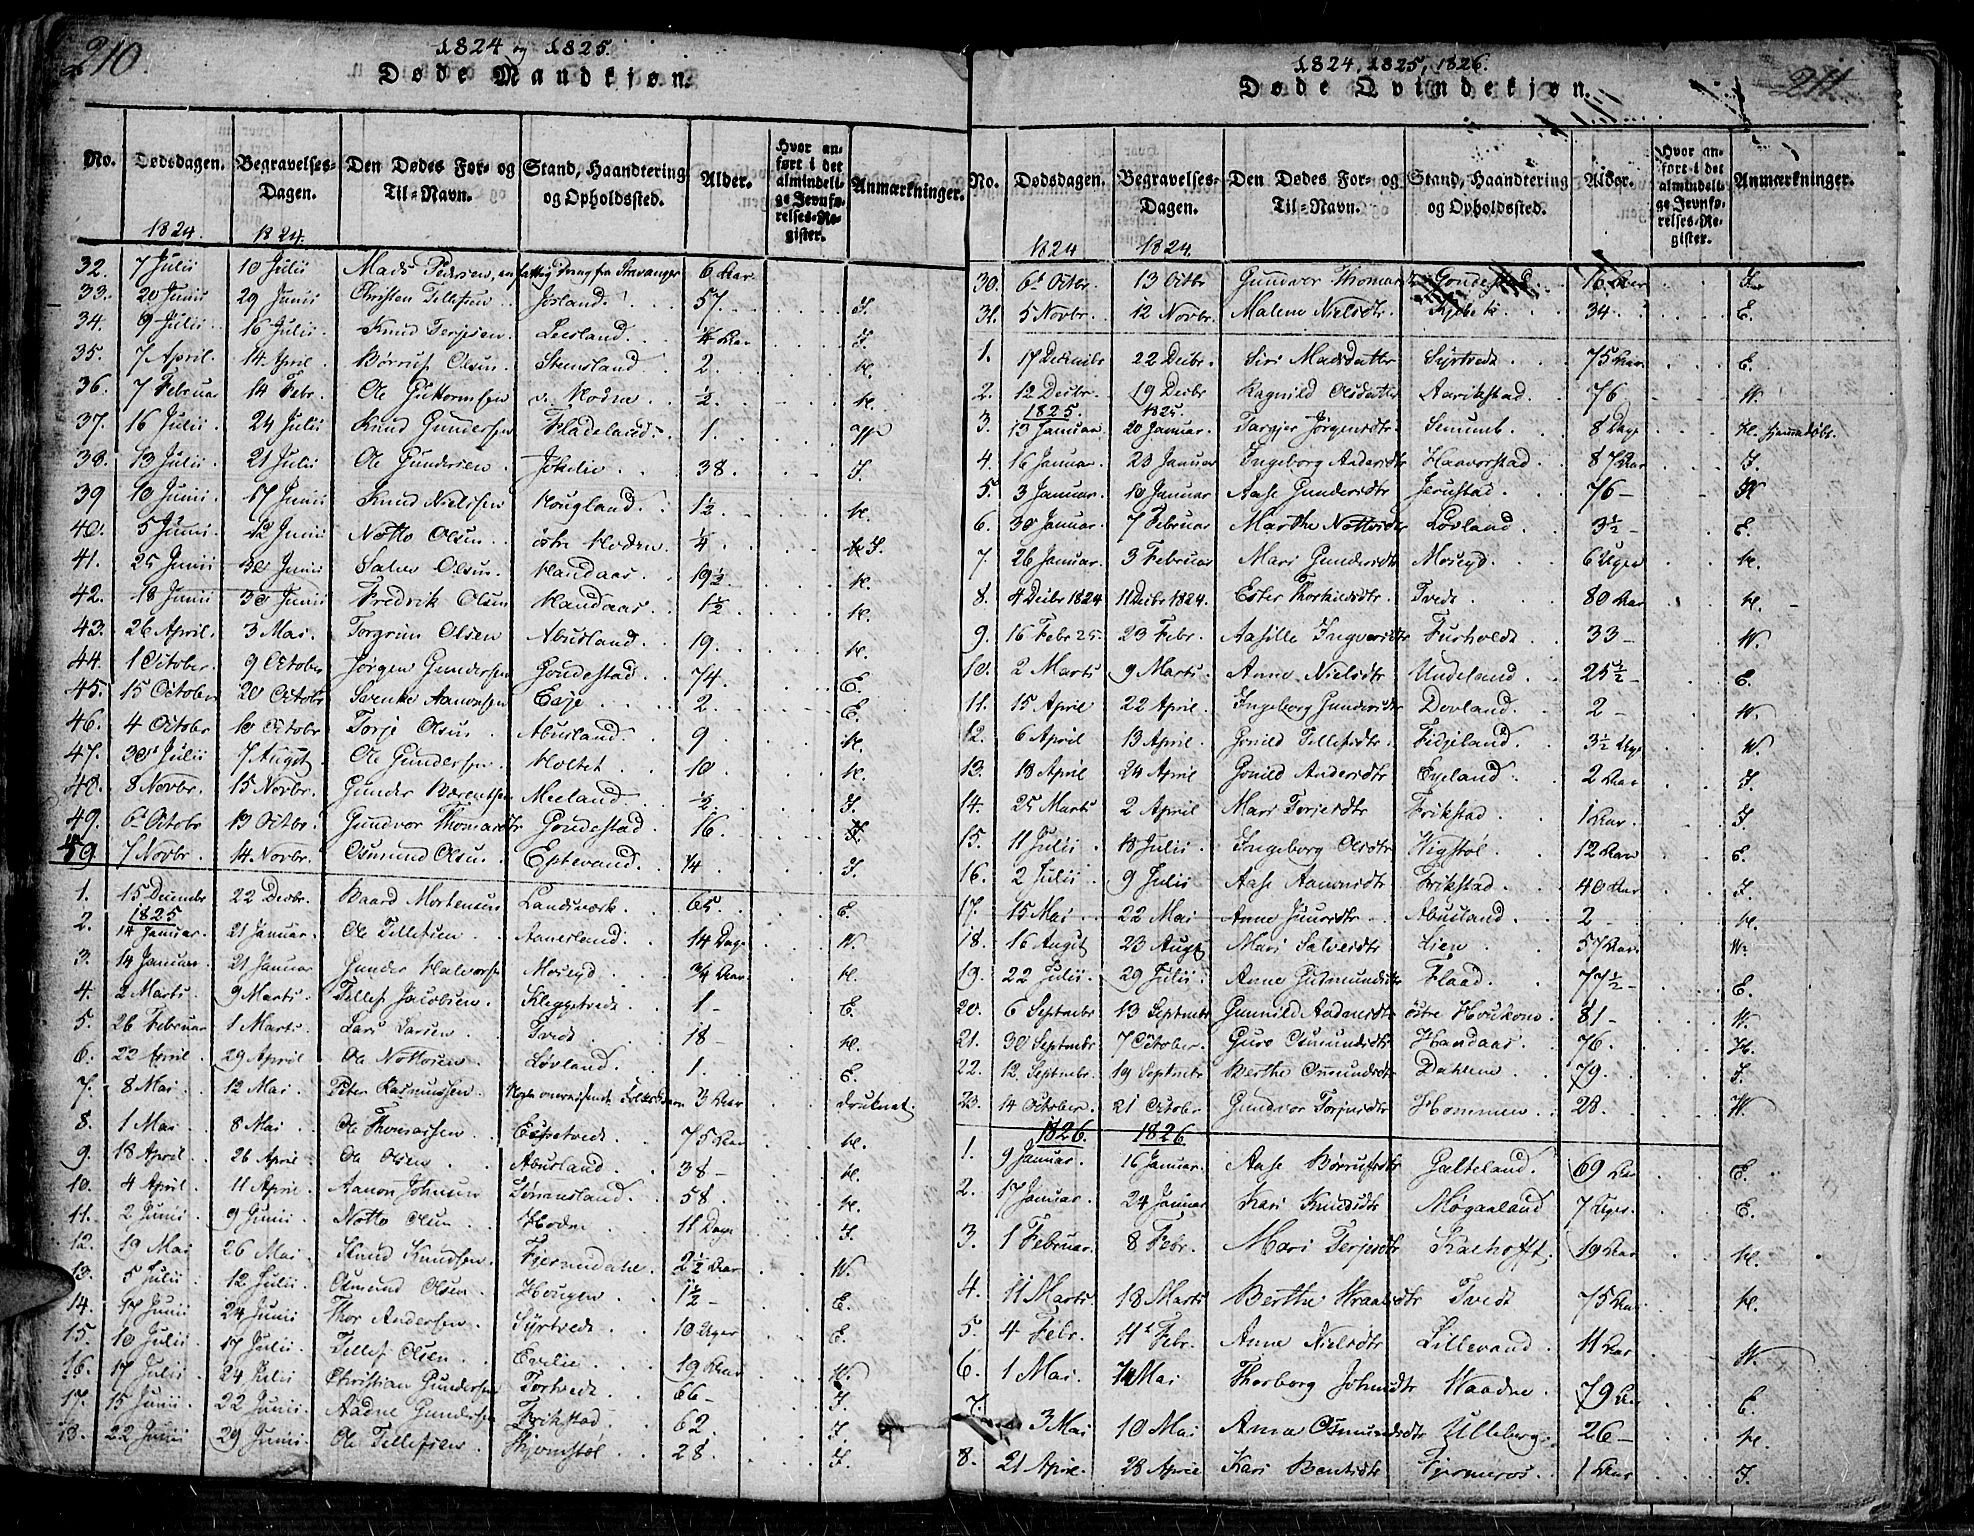 210.
1824 og 1825.
Døde Mandkjøn.
No. Dødsdagen. Begravelses-Dagen. Den Dødes For- og Til-Navn. Stand, Haandtering og Opholdssted. Alder. Hvor anført i det almindelige Jevnførelses-Register. Anmærkninger.
1824. 1824.
32. 7 Julii 10 Julii Mads Pedersen, en fattig dreng fra Stavanger 6 Aar
33. 20 Junii 29 Junii Christen Tellefsen Jorland. 57. I.
34. 9 Julii 16 Julii Knud Terjesen Leesland. ¼ Aar I.
35. 7 April. 14 April. Børruf Olsen Stensland. 2. H.
36. 7 Februar 14 Febr. Ole Guttormsen v. Hodne. ½. H.
37. 16 Julii 24 Julii Knud Gundersen Fladeland. 1.
38. 13 Julii 21 Julii Ole Gundersen Jokelie. 38. I.
39 10 Junii. 17 Junii Knud Nielsen Hougland. 1½. H.
40. 5 Juni. 12 Junii Notto Olsen østre Hodne. ¼. I.
41. 25 Junii 30 Junii Salve Olsen Handaas. 19½. H.
42. 18 Junii 30 Junii Fredrik Olsen Handaas. 1½ H.
43. 26 April. 3 Mai. Torgrim Olsen Abusland. 19. H.
44. 1 October. 9 October Jørgen Gundersen Gondestad. 74. E.
45. 15 October 20 Octobr Svenke Aanonsen Eeje 2. E.
46. 4 Octobr 10 Octobr Torje Olsen Abusland. 9. H.
47. 30 Julii 7 August. Ole Gundersen Holtet. 10. H.
48. 8 Novbr. 15 Novbr. Gunder Bærentsen Meeland. ½. I.
49. 6 Octobr 13 Octbr. Gundvor Thomasdtr Gondestad. 16.
50 7 Novbr. 14 Novbr. Osmund Olsen Eptevand. ¼. I.
1. 15 Decembr 22 Decbr. Baard Mortensen Landsværk. 65. E.
1825
2. 14 Januar. 21 Januar. Ole Tellefsen Aanesland. 14 Dage W.
3. 14 Januar. 21 Januar Gunder Halvorsen Moseyd. ¾ Aar H.
4. 2 Marts. 9 Marts. Tellef Jacobsen. Kleggetvedt. 1 - E.
5. 26 Februar 1 Marts. Lars Larsen Tvedt. 18 - H.
6. 22 April. 29 April Ole Nottosen. Løvland. 1. E.
7. 8 Mai. 12 Mai. Peter Rasmussen. 3 Aar druknet.
8. 1 Mai 8 Mai. Ole Thomassen. Espetvedt. 75 Aar H.
9. 18 April. 26 April. Ole Olsen. Abusland. 38 - H.
10. 4 April. 11 April. Aanon Johnsen Tønnesland. 58. H.
11. 2 Junii. 9 Junii. Notto Olsen Hodne 11 Dage I.
12. 19 Mai 26 Mai. Knud Knudsen Fjermedal. 2½ Aar. W.
13. 5 Julii 12 Julii Osmund Olsen. Hougen. 1½ - E.
14. 17 Junii 24 Junii Thor Andersen. Syrtvedt. 10 Uger E.
15. 10 Julii. 17 Julii. Tellef Olsen. Evilie. 19 Aar
16. 17 Julii. 24 Julii Christian Gundersen Tortvedt. 66 - I.
17. 15 Junii 22 Junii. Aadne Gundersen Frikstad. 62. I.
18. 22 Junii 29 Junii. Ole Tellefsen. Hjemstøl. 28. I.
211.
1824, 1825, 1826.
Døde Qvindekjøn.
No. Dødsdagen. Begravelses-Dagen. Den Dødes For- og Til-Navn. Stand, Haandtering og Opholdssted. Alder. Hvor anført i det almindelige Jevnførelses-Register. Anmærkninger.
1824 1824.
30. 6 Octbr. 13 Octbr Gundvor Thomasdtr Gondestad. 16 Aar I.
31. 5 Novbr. 12 Novbr. Malene Nielsdtr. 34. E.
1. 17 Decembr 22 Decbr. Siri Madsdatter Syrtvedt. 75 Aar. E.
2. 12 Decbr. 19 Decbr Ragnild Olsdatter Aarikstad. 76 W.
1825. 1825.
3. 13 Januar. 20 Januar. Targjer Jørgensdtr. 8 Dage H. hjemmedøbt.
4. 16 Januar. 23 Januar Ingeborg Andersdtr Haaverstad. 87 Aar I.
5. 3 Januar. 10 Januar Aase Gundersdtr Jerustad. 76 - H
6. 30 Januar. 7 Februar Marthe Nottosdtr Løvland. 3½ - E.
7. 26 Januar. 3 Februar Mari Gundersdtr Moseyd. 6 Uger H.
8. 4 Decbr 1824 11 Decbr 1824. Ester Torkildsdtr. Tvedt. 80 Aar H.
9. 16 Febr 25 23 Febr. Aasille Ingversdtr Furholdt. 33 - W.
10. 2 Marts 9 Marts. Anne Nielsdtr Uideland. 25½ - E.
11. 15 April 22 April. Ingeborg Gundersdtr Dovland. 2 - W.
12. 6 April 13 April. Gonild Tellefsdtr. Fidjeland. 3½ Uge W.
13. 18 April 24 April Gonild Andersdtr Eyeland. 2 Aar I.
14. 25 Marts 2 April Mari Torjersdtr Frikstad. 1 Aar. I.
15. 11 Julii 18 Julii. Ingeborg Olsdtr Vigstøl. 12 Aar E.
16. 2 Julii 9 Julii Aase Aanensdtr Frikstad. 40 Aar I.
17. 15 Mai 22 Mai Anne Jensdtr. Abusland. 2 - H.
18. 16 Augst 23 Augst Mari Salvesdtr Lien 57 Aar. W.
19. 22 Julii 29 Julii. Anne Gutmundsdtr Flaad. 77½ - E.
20. 6 Septembr 13 Septembr Gunnild Aadnesdtr østre Houkom. 81 - W.
21. 30 Septembr 7 October. Guro Osmundsdtr Handaas. 76. H.
22. 12 Septembr. 19 Septembr Berthe Osmundsdtr Dahlene 79. I.
23. 14 October. 21 Octobr Gundvor Torjersdtr Hommen. 28. W.
1826. 1826
1. 9 Januar. 16 Januar. Aase Børrufsdtr Galteland. 69 Aar E.
2. 17 Januar. 24 Januar Kari Knudsdtr Møgaaland 7 Uger. E.
3. 1 Februar. 8 Febr. Mari Terjesdtr Kalhofft. 19 Aar H.
4. 11 Marts 18 Marts Berthe Wraalsdtr Tvedt 75 Aar H.
5. 4 Febr. 11 Febr. Anne Nielsdtr Lillevand. 11 Aar W.
6. 1 Mai. 7 Mai Thorborg Johnsdtr Waadne. 79 Aar E.
7. 3 Mai 10 Mai Anne Osmundsdtr Ulleberg. 26 - H.
8. 21 April. 28 April Kari Bentsdtr Fjermeros. 1 Aar I.